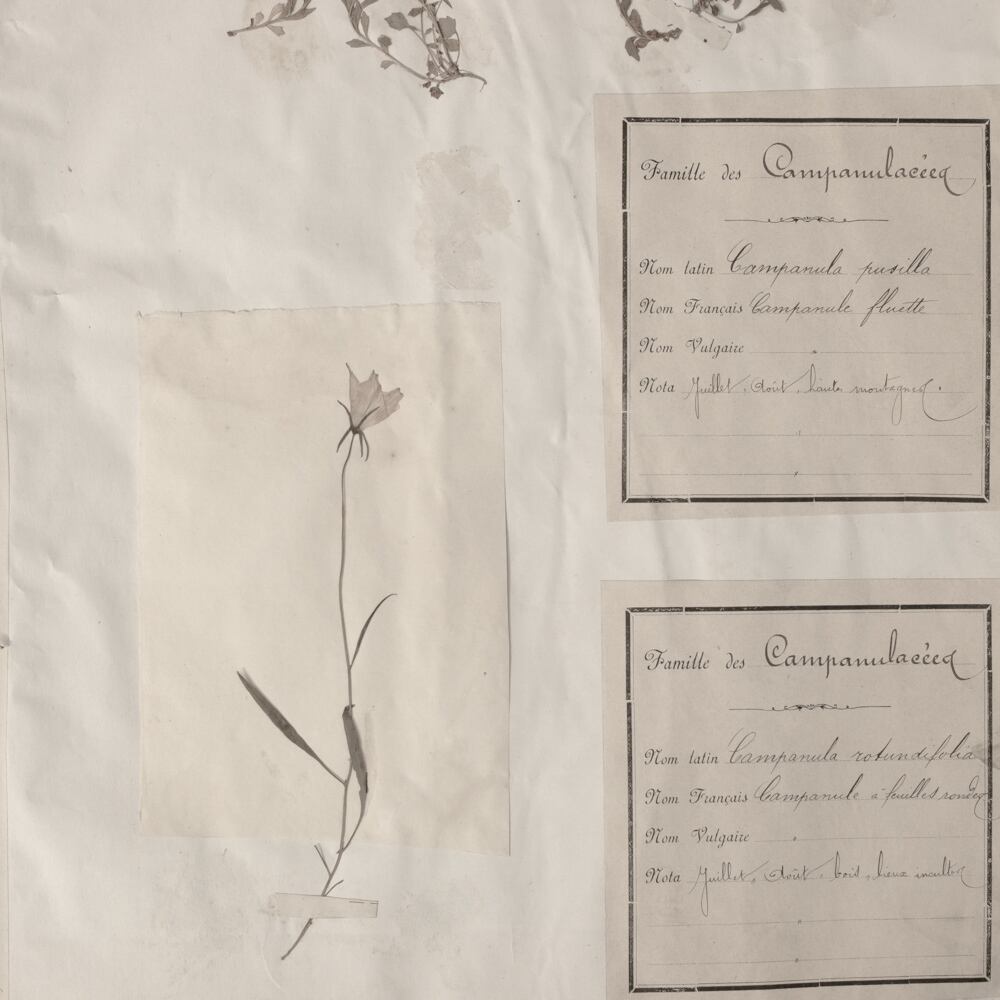 Famille des Campanulacées
Nom latin Campanula pusilla
Nom Français Campanule fluette
Nom Vulgaire
Nota Juillet, Août, hautes montagnes.
Famille des Campanulacées
Nom latin Campanula rotundifolia
Nom Français Campanule à feuilles rondes
Nom Vulgaire
Nota Juillet, Août, bois, lieux incultes